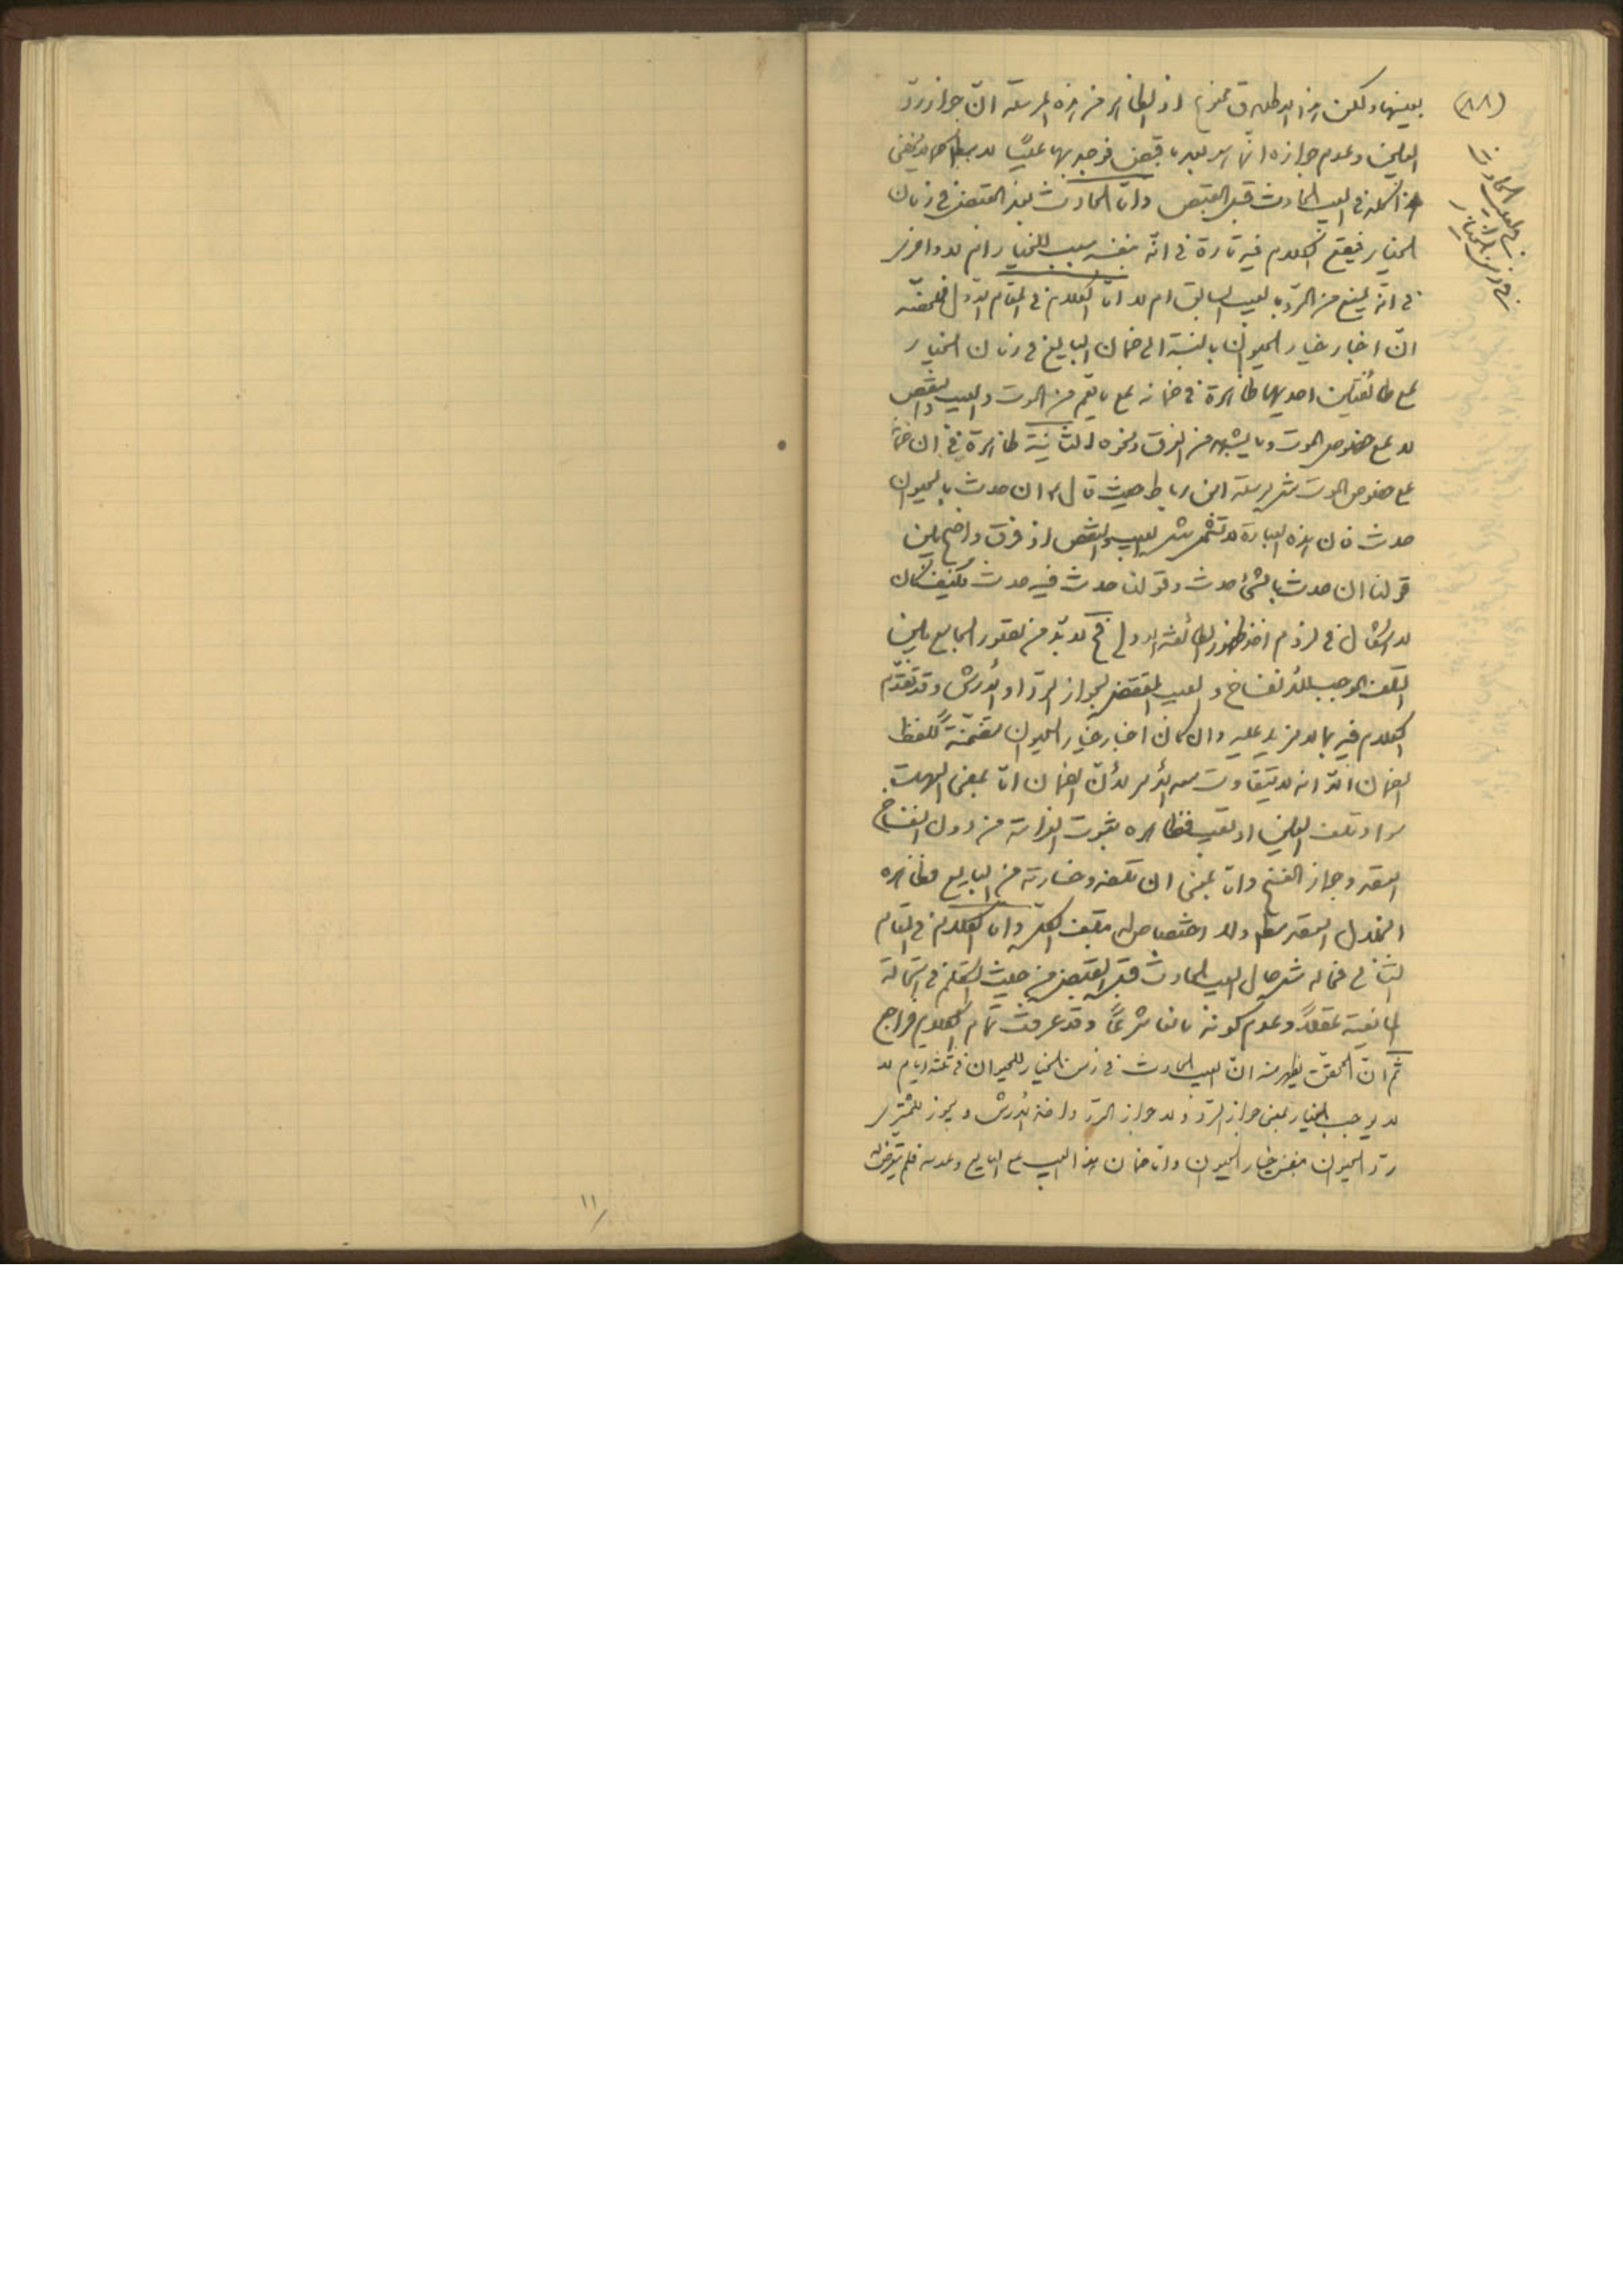 (٨٨)
بعينها ولكن هذا الاطلاق ممنوع اذ الظاهر من هذه المرسلة انّ جواز ردّ
العين وعدم جوازه انّما هو بعد ما قبض فوجد بها عيبًا لا مطلقا كما لا يخفى
هذا كله في العيب الحادث قبل القبض وامّا الحادث بعد القبض في زمان
الخيار فيقع الكلام فيه تارة في انّه بنفسه سبب للخيار ام لا واخرى
في انّه يمنع من الردّ بالعيب السابق ام لا امّا الكلام في المقام الاوّل فملخصّه
انّ اخبار خيار الحيوان بالنسبة الى ضمان البايع في زمان الخيار
على طائفتين احديهما ظاهرة في ضمانه على ما يعم من الموت والعيب والنقص
لا على خصوص الموت وما يشبهه من الغرق ونحوه الثانية ظاهرة في ان ضمانه
على خصوص الموت مثل مرسلة ابن رباط حيث قال ان حدث بالحيوان
حدث فان هذه العبارة لا تشمل مثل العيب والنقص اذ فرق واضح بين
قولنا ان حدث بالشئ حدث وقولنا حدث فيه حدث فكيف كان
لا اشكال في لزوم اخذ ظهور الطائفة الاولى فح لا بدّ من تصور الجامع بين
التلف الموجب للانفساخ والعيب المقتضى لجواز الردّ او الارش وقد تقدّم
الكلام فيه بما لا مزيد عليه وان كان اخبار خيار الحيوان متضمّنةً للفظ
الضمان الّا انه لا يتفاوت معه الامر لانّ الضمان امّا بمعنى العهدة
سواء تلف العين او تعيب فظاهره ثبوت الغرامة من دون انفساخ
العقد وجواز الفسخ وامّا بمعنى ان تلفه وخسارته من البايع فظاهره
انحلال العقد مطلقا ولا اختصاص له بتلف الكل وامّا الكلام في المقام
الثاني فحاله مثل حال العيب الحادث قبل القبض من حيث التكلم في استحالة
المانعية عقلاً وعدم كونه مانعا شرعًا وقد عرفت تمام الكلام فراجع
ثم انّ المحقق يظهر منه انّ العيب الحادث في زمن الخيار للحيوان في ثلثة ايام لا
لا يوجب الخيار بمعنى جواز الردّ ولا جواز الردّ واخذ الارش ويجوز للمشترى
ردّ الحيوان بنفس خيار الحيوان وامّا ضمان هذا العيب على البايع وعدمه فلم يتعرض له
في العيب الحادث
في زمن الخيار
١١